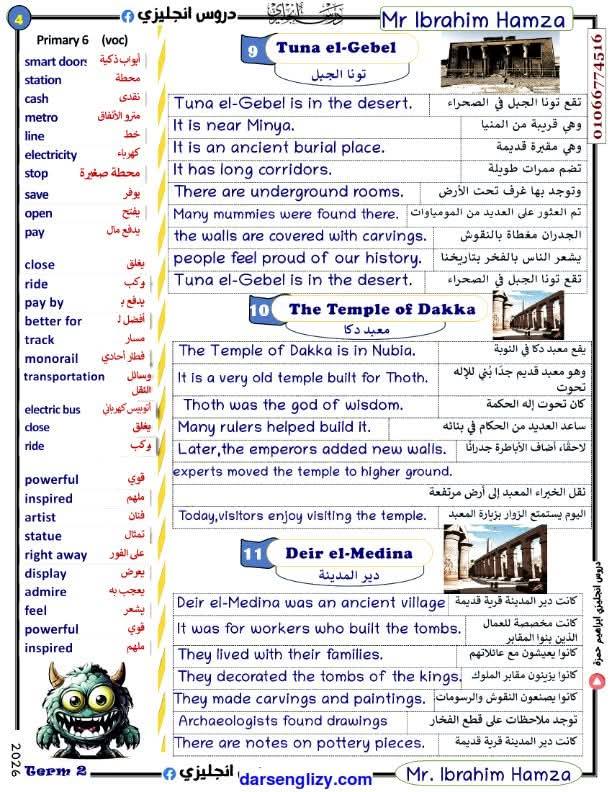 4
دروس انجليزي
Mr Ibrahim Hamza
01066774516
Primary 6 (voc)
smart doors أبواب ذكية
station محطة
cash نقدى
metro مترو الأنفاق
line خط
electricity كهرباء
stop محطة صغيرة
save يوفر
open يفتح
pay يدفع مال
close يغلق
ride يركب
pay by يدفع بـ
better for أفضل لـ
track مسار
monorail قطار أحادي
transportation وسائل النقل
electric bus أتوبيس كهربائي
close يغلق
ride يركب
powerful قوي
inspired ملهم
artist فنان
statue تمثال
right away على الفور
display يعرض
admire يعجب به
feel يشعر
powerful قوي
inspired ملهم
2026
Term 2
9 Tuna el-Gebel
تونا الجبل
Tuna el-Gebel is in the desert. تقع تونا الجبل في الصحراء
It is near Minya. وهي قريبة من المنيا
It is an ancient burial place. وهي مقبرة قديمة
It has long corridors. تضم ممرات طويلة
There are underground rooms. وتوجد بها غرف تحت الأرض
Many mummies were found there. تم العثور على العديد من المومياوات
the walls are covered with carvings. الجدران مغطاة بالنقوش
people feel proud of our history. يشعر الناس بالفخر بتاريخنا
Tuna el-Gebel is in the desert. تقع تونا الجبل في الصحراء
10 The Temple of Dakka
معبد دكا
The Temple of Dakka is in Nubia. يقع معبد دكا في النوبة
It is a very old temple built for Thoth. وهو معبد قديم جدًا بُني للإله تحوت
Thoth was the god of wisdom. كان تحوت إله الحكمة
Many rulers helped build it. ساعد العديد من الحكام في بنائه
Later,the emperors added new walls. لاحقًا، أضاف الأباطرة جدرانًا
experts moved the temple to higher ground.
نقل الخبراء المعبد إلى أرض مرتفعة
Today,visitors enjoy visiting the temple. اليوم يستمتع الزوار بزيارة المعبد
11 Deir el-Medina
دير المدينة
Deir el-Medina was an ancient village كانت دير المدينة قرية قديمة
It was for workers who built the tombs. كانت مخصصة للعمال الذين بنوا المقابر
They lived with their families. كانوا يعيشون مع عائلاتهم
They decorated the tombs of the kings. كانوا يزينون مقابر الملوك
They made carvings and paintings. كانوا يصنعون النقوش والرسومات
Archaeologists found drawings توجد ملاحظات على قطع الفخار
There are notes on pottery pieces. كانت دير المدينة قرية قديمة
دروس انجليزي ابراهيم حمزة
انجليزي
darsenglizy.com
Mr. Ibrahim Hamza